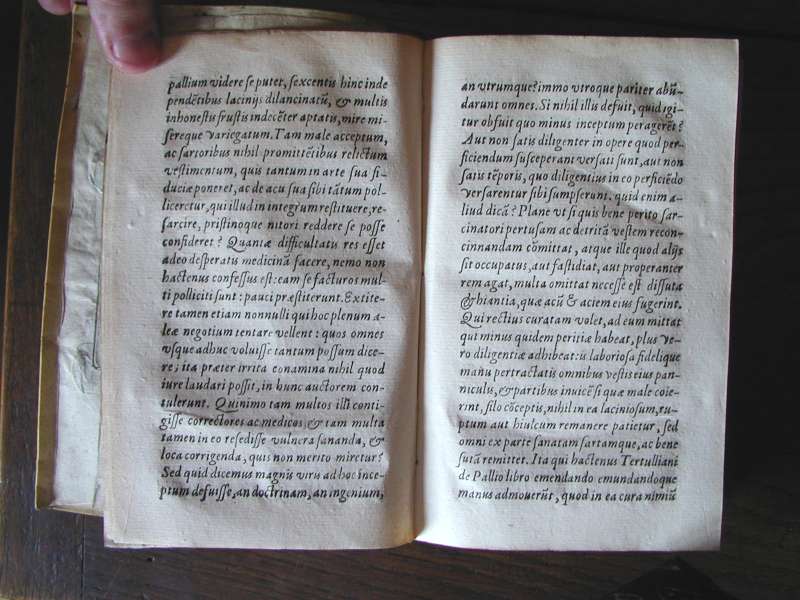 pallium videre se putet, sexcentis hinc inde
pendẽtibus lacinijs dilancinatũ, & multis
inhonestis frustis indecẽter aptatis, mire mi-
sereque variegatum. Tam male acceptum,
ac sartoribus nihil promittẽtibus relictum
vestimentum, quis tantum in arte sua fi-
duciæ poneret, ac de acu sua sibi tãtum pol-
liceretur, qui illud in integrum restituere, re-
sarcire, pristinoque nitori reddere se posse
confideret? Quantæ difficultatis res esset
adeo desperatis medicinã facere, nemo non
hactenus confessus est: eam se facturos mul-
ti polliciti sunt: pauci præstiterunt. Extite-
re tamen etiam nonnulli qui hoc plenum a-
leæ negotium tentare vellent: quos omnes
vsque adhuc voluisse tantum possum dice-
re; ita præter irrita conamina nihil quod
iure laudari possit, in hunc auctorem con-
tulerunt. Quinimo tam multos illi conti-
gisse correctores ac medicos, & tam multa
tamen in eo resedisse vulnera sananda, &
loca corrigenda, quis non merito miretur?
Sed quid dicemus magnis viris ad hoc ince-
ptum defuisse, an doctrinam, an ingenium,
an vtrumque? immo vtroque pariter abũ-
darunt omnes. Si nihil illis defuit, quid igi-
tur obfuit quo minus inceptum peragerẽt?
Aut non satis diligenter in opere quod per-
ficiendum susceperant versati sunt, aut non
satis tẽporis, quo diligentius in eo perficiẽdo
versarentur sibi sumpserunt. quid enim a-
liud dicã? Plane vt si quis bene perito sar-
cinatori pertusam ac detritã vestem recon-
cinnandam cõmittat, atque ille quod alijs
sit occupatus, aut fastidiat, aut properanter
rem agat, multa omittat necesse est dissuta
& hiantia, quæ acũ & aciem eius fugerint.
Qui rectius curatam volet, ad eum mittat
qui minus quidem peritiæ habeat, plus ve-
ro diligentiæ adhibeat: is laboriosa fidelique
manu pertractatis omnibus vestis eius pan-
niculis, & partibus inuicẽ si quæ male coie-
rint, filo cõceptis, nihil in ea laciniosum, ru-
ptum aut hiulcum remanere patietur, sed
omni ex parte sanatam sartamque, ac bene
sutã remittet. Ita qui hactenus Tertulliani
de Pallio libro emendando emundandoque
manus admouerũt, quod in ea cura nimiũ